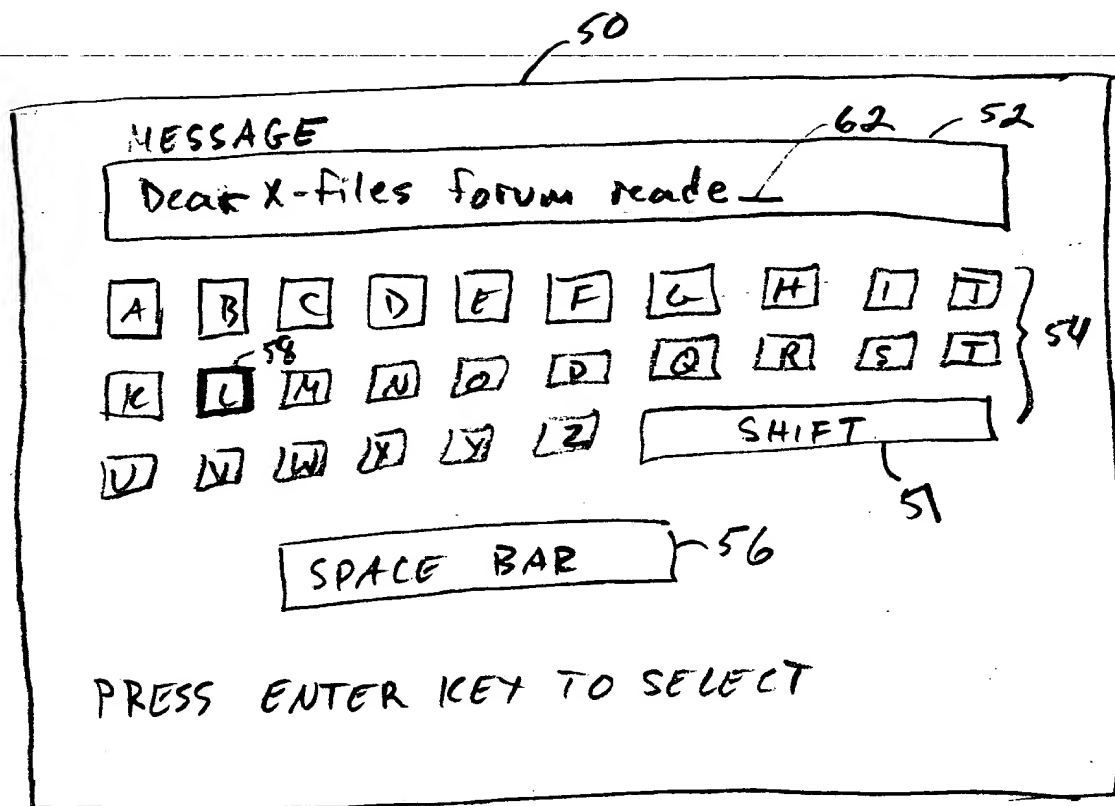 50
MESSAGE 62 52
Dear X-files forum reade_
A B C D E F G H I J
54
58
K L M N O P Q R S T
U V W X Y Z SHIFT
51
SPACE BAR 56
PRESS ENTER KEY TO SELECT